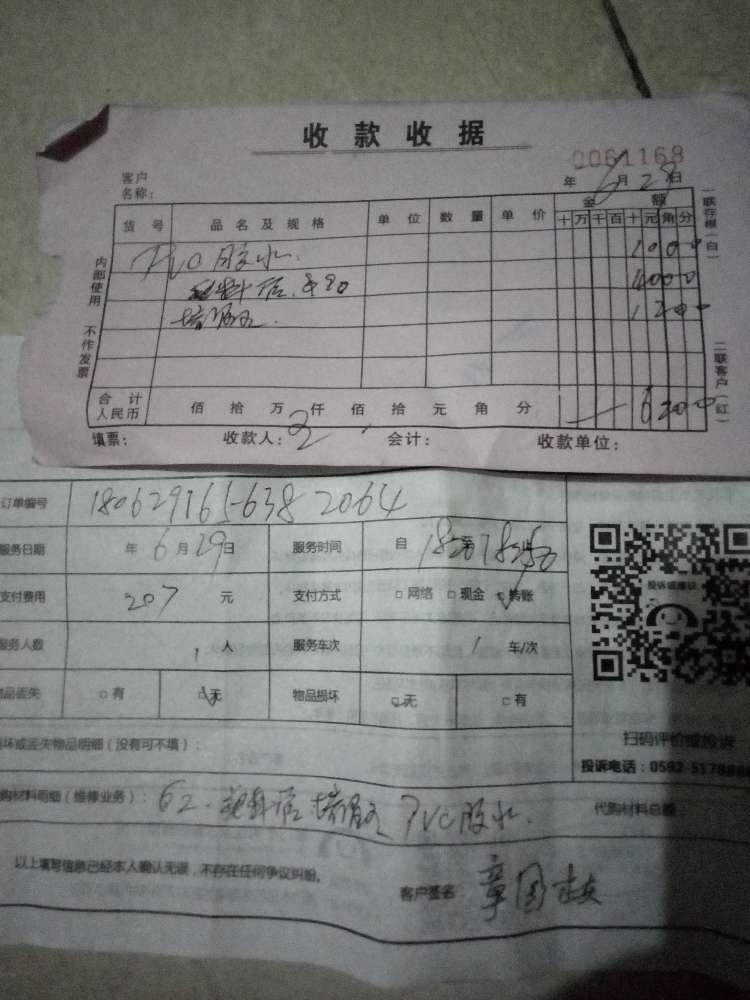 收款收据
0061168
客户
名称：
年 6 月 28 日
货号 品名及规格 单位 数量 单价 金额
十万千百十元角分
PVC胶水 1000
4000
1200
合计
人民币 佰拾万仟佰拾元角分 6200
填票： 收款人： 会计： 收款单位：
内部使用 不作发票
一联存根（白） 二联客户（红）
订单编号 180629165-638 2064
服务日期 年 6 月 29 日 服务时间 自
支付费用 207 元 支付方式 □网络 □现金 □转账
服务人数 1 人 服务车次 1 车/次
物品丢失 □有 □无 物品损坏 □无 □有
投诉或建议
损坏或丢失物品明细（没有可不填）：
扫码评价或投诉
投诉电话：0592-5178888
代购材料明细（维修业务）： 62. PVC胶水. 代购材料总额
以上填写信息已经本人确认无误，不存在任何争议纠纷。
客户签名： 章国